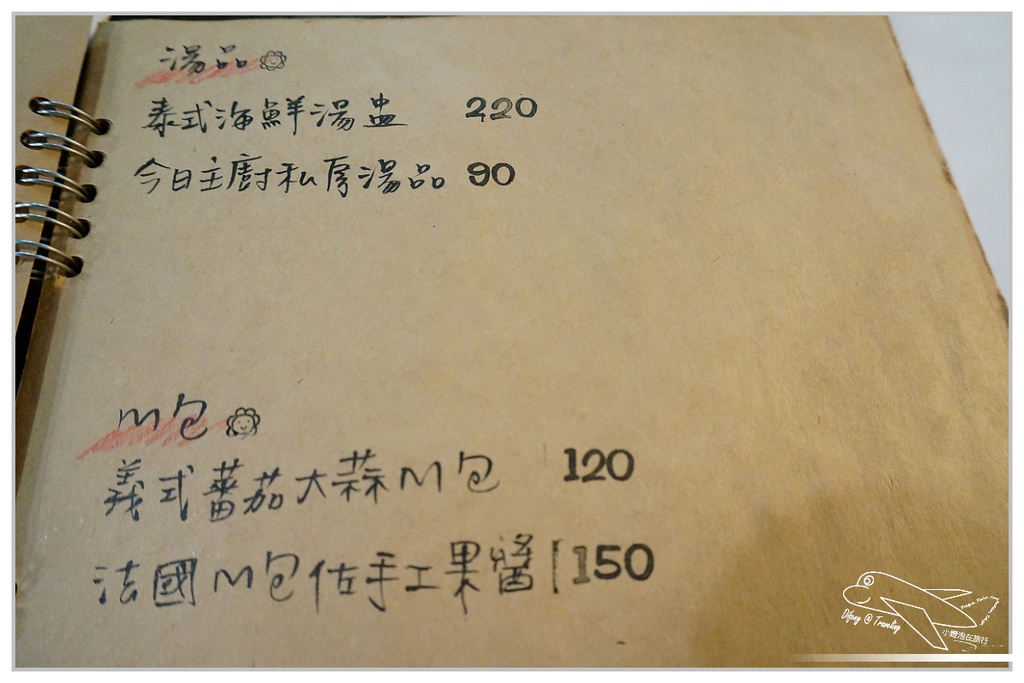 湯品
泰式海鮮湯盅 220
今日主廚私房湯品 90
M包
義式蕃茄大蒜M包 120
法國M包佐手工果醬 150
小艷泡在旅行